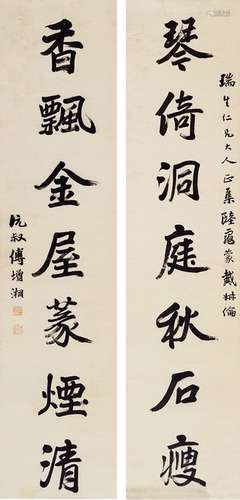 瑞生仁兄大人正集陸龜蒙戴林倫
琴倚洞庭秋石瘦
香飄金屋篆煙清
沅叔傅增湘